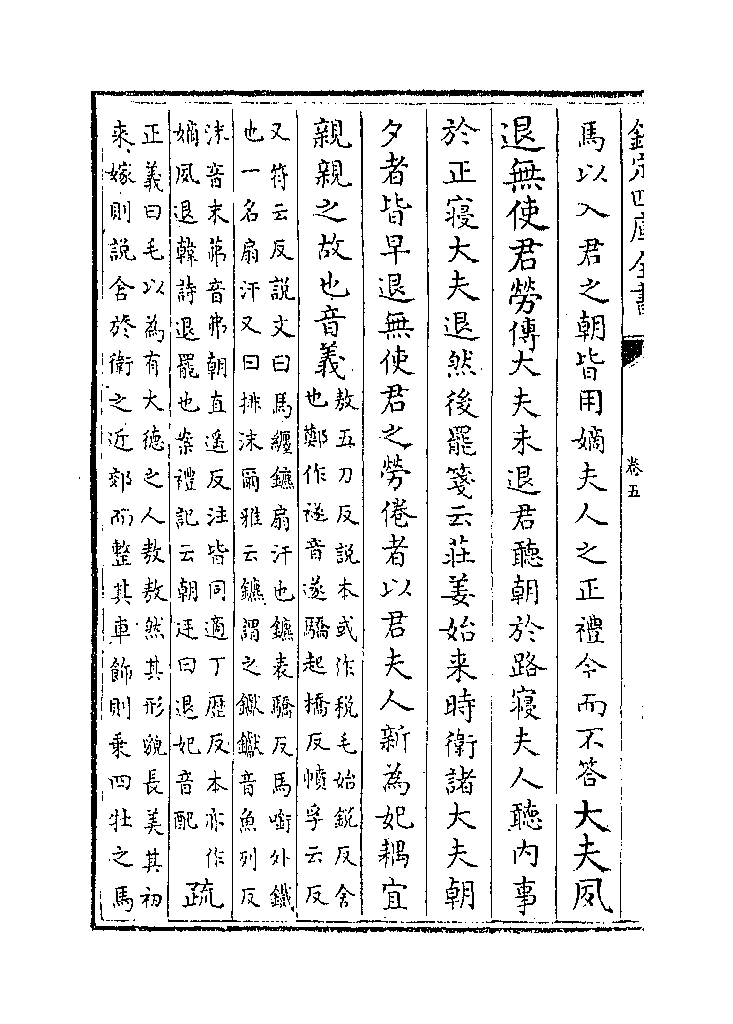 欽定四庫全書
卷五
馬以入君之朝皆用嫡夫人之正禮今而不答大夫夙
退無使君勞傳大夫未退君聽朝於路寢夫人聽内事
於正寢大夫退然後罷箋云莊姜始来時衛諸大夫朝
夕者皆早退無使君之勞倦者以君夫人新為妃耦宜
親親之故也音義
敖五刀反説本或作税毛始鋭反舍
也鄭作襚音遂驕起橋反幩孚云反
又符云反説文曰馬纏鑣扇汗也鑣表驕反馬銜外鐵
也一名扇汗又曰排沫爾雅云鑣謂之钀钀音魚列反
沫音末茀音弗朝直遥反注皆同適丁歴反本亦作
嫡夙退韓詩退罷也案禮記云朝廷曰退妃音配
疏
正義曰毛以為有大徳之人敖敖然其形貌長美其初
来嫁則説舍於衛之近郊而整其車飾則乗四牡之馬